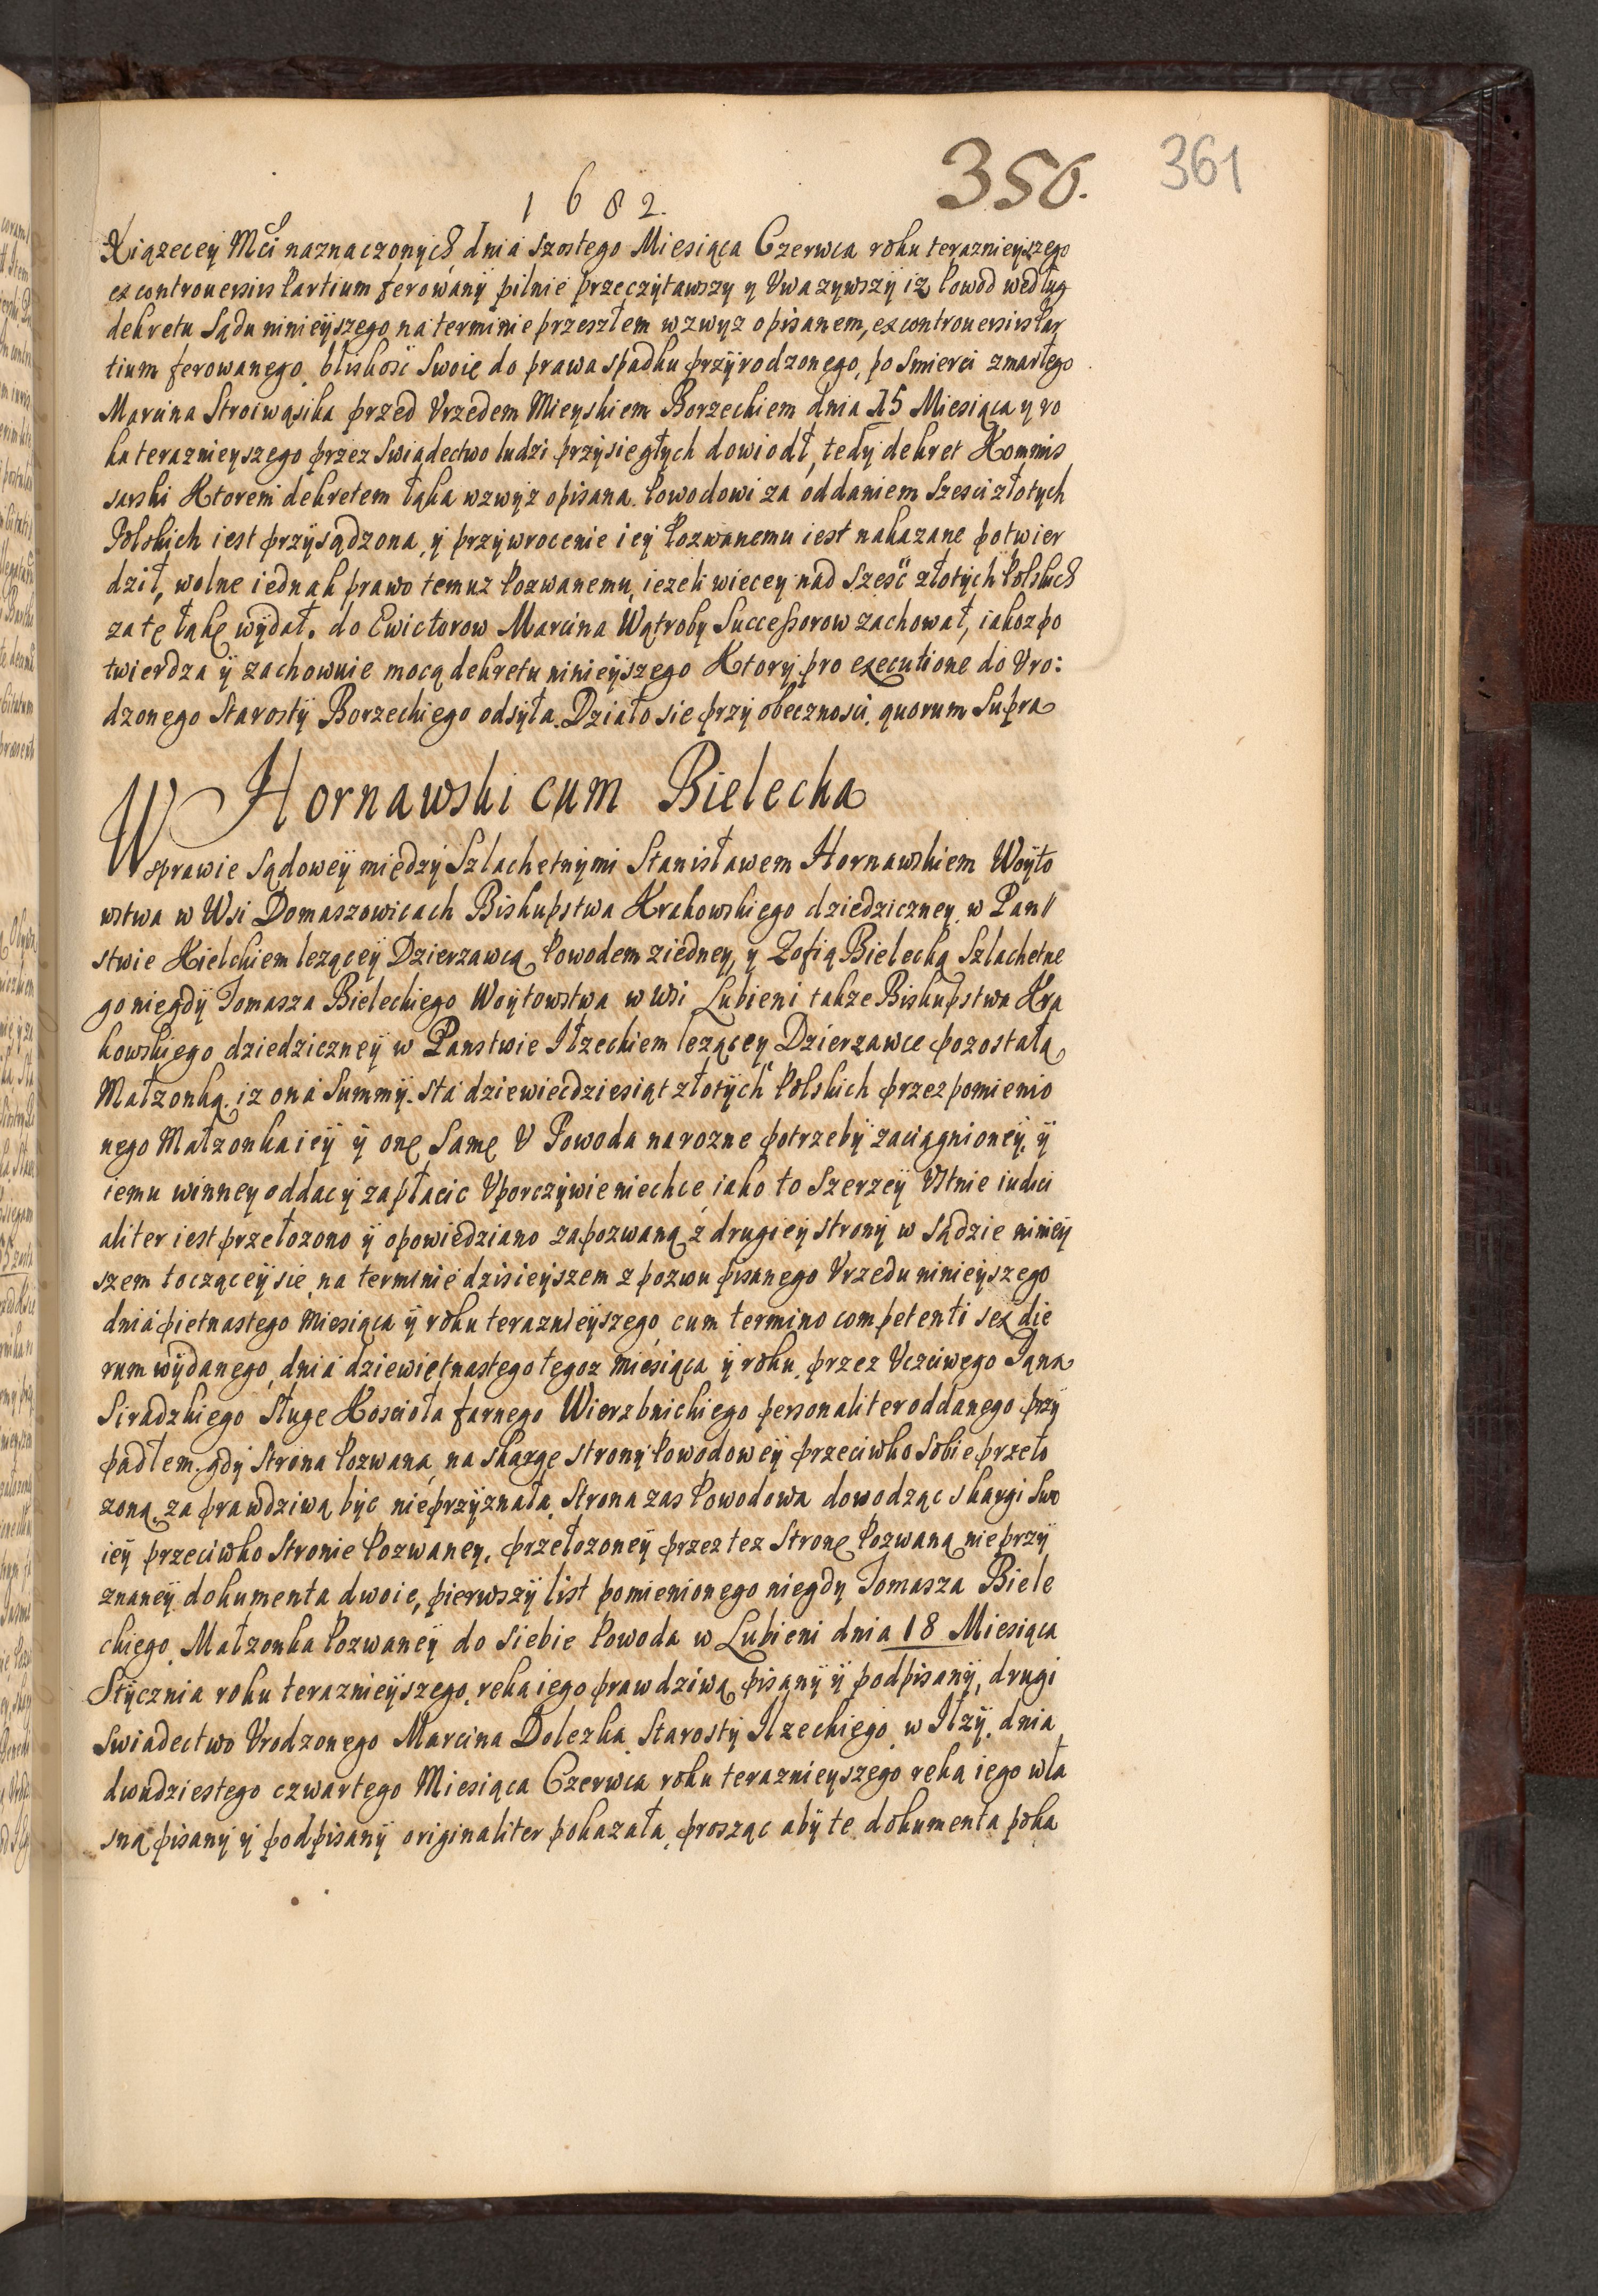 1682.
356.
361
Xiązecey Mci naznaczonych, dnia szostego Miesiąca Czerwca roku teraznieyszego
ex controuersiis Partium ferowanÿ pilnie przeczÿtawszy y Vwazywszÿ iz Powod według
dekretu Sądu ninieÿszego na terminie przeszłem wzwyz opisanem, ex controuersiis Par
tium ferowanego, bliskosć Swoię do prawa spadku przÿrodzonego, po smierci zmarłego
Marcina Strociwąsika przed Vrzedem Mieyskiem Borzeckiem dnia 15 Miesiąca y ro
ku teraznieyszego przez swiadectwo ludzi przysięgłych dowiodł, tedÿ dekret Kommis
sarski Ktorem dekretem łąka wzwÿz opisana Powodowi za oddaniem Szesci złotych
Polskich iest przÿsądzona, ÿ przÿwrocenie ieÿ Pozwanemu iest nakazane potwier
dził, wolne iednak prawo temuz Pozwanemu, iezeli wiecey nad Szesć złotÿch Polskich
za tę łąkę wÿdał. do Ewictorow Marcina Wątroby Successorow zachował, iakoz po
twierdza ÿ zachowuie mocą dekretu ninieÿszego Ktorÿ pro executione do Vro:
dzonego Starostÿ Borzeckiego odsÿła. Działo sie przÿ obecznosci, quorum Supra
Hornawski cum Bielecka
W sprawie Sądoweÿ międzÿ Szlachetnÿmi Stanisławem Hornawskiem Woÿto
wstwa w Wsi Domaszowicach Biskupstwa Krakowskiego dziedziczney w Pan//
stwie Kielckiem leząceÿ Dzierzawcą Powodem ziedney, y Zofią Bielecką Szlachetne
go niegdÿ Tomasza Bieleckiego Woÿtowstwa w Wsi Lubieni takze Biskupstwa Kra
kowskiego dziedziczneÿ w Panstwie Iłzeckiem lezącey Dzierzawce pozostałą
Małzonką. iz ona Summÿ. Sta dziewiecdziesiąt złotÿch Polskich przez pomienio
nego Małzonka ieÿ ÿ onę Samę V Powoda na rozne potrzebÿ zaciągnioneÿ, ÿ
iemu winney oddac ÿ zapłacic Vporczÿwie niechce iako to Szerzeÿ Vstnie iudici
aliter iest przełozono ÿ opowiedziano zapozwaną z drugieÿ stronÿ w Sądzie nınieÿ
szem toczączeÿ sie, na terminie dzisieÿszem z pozwu pisanego Vrzedu ninieÿszego
dnia pietnastego Miesiąca ÿ roku teraznieÿszego, cum termino competenti sex die
rum wÿdanego, dnia dziewiętnastego tegoz miesiąca ÿ roku. przez Vczciwego Iana
Siradzkiego Sługe Kosciota farnego Wierzbnickiego personaliter oddanego przÿ
padłem. gdÿ Strona Pozwana, na skargę stronÿ Powodoweÿ przeciwko Sobie przeło
zoną, za prawdziwą byc nie przÿznała. Strona zas Powodowa dowodząc skargi Swo
ieÿ przeciwko Stronie Pozwaney, przełozoneÿ przez tez Stronę Pozwaną nie przÿ
znaneÿ dokumenta dwoie, pierwszÿ list pomienionego niegdy Tomasza Biele
ckiego Małzonka Pozwaneÿ do Siebie Powoda w Lubieni dnia 18 Miesiąca
Stÿcznia roku teraznieÿszego, ręką iego prawdziwą pisanÿ ÿ podpisanÿ, drugi
Swiadectwo Vrodzonego Marcina Dolezka Starostÿ Ilzeckiego w Ilzÿ. dnia
dwudziestego czwartego Miesiąca Czerwca roku teraznieyszego ręką iego wła
sną pisanÿ ÿ podpisanÿ originaliter pokazała, prosząc abÿ te dokumenta poka